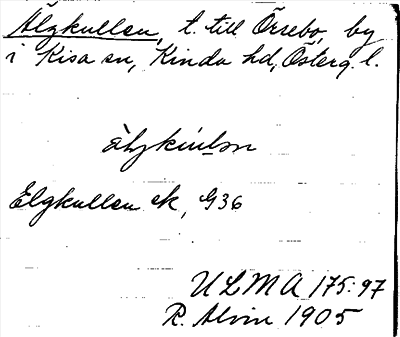 Älgkullen, t. till Örsebo, by
i Kisa sn, Kinda hd, Österg. l.
Elgkullen ek, G36
ULMA 175:97
R. Alvin 1905